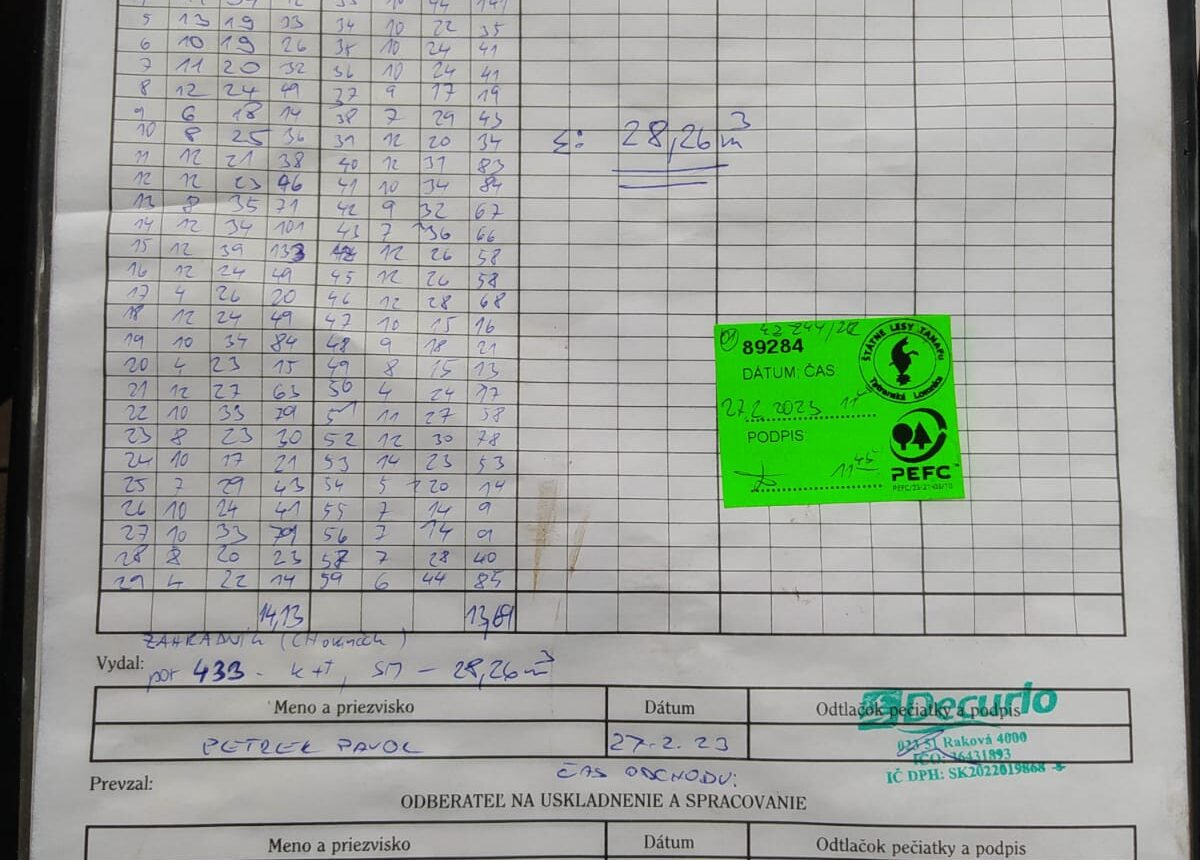 5 13 19 33 34 10 22 35
6 10 19 26 35 10 24 41
7 11 20 32 36 10 24 41
8 12 24 49 37 9 17 19
9 6 18 14 38 7 29 43
10 8 25 36 39 12 20 34
11 12 21 38 40 12 31 83
12 12 23 46 41 10 34 84
13 8 35 71 42 9 32 67
14 12 34 101 43 7 36 66
15 12 39 133 12 26 58
16 12 24 49 45 12 26 58
17 4 26 20 46 12 28 68
18 12 24 49 47 10 15 16
19 10 34 84 48 9 18 21
20 4 23 15 49 8 15 13
21 12 27 63 50 4 24 17
22 10 33 79 51 11 27 58
23 8 23 30 52 12 30 78
24 10 17 21 53 14 23 53
25 7 29 43 54 5 20 14
26 10 24 41 55 7 14 9
27 10 33 79 56 7 14 9
28 8 20 23 58 7 28 40
29 4 22 14 59 6 44 85
14,13
Σ: 28,26 m³
89284
ŠTÁTNE LESY TANAPU
Tatranská Lomnica
DÁTUM: ČAS
27.2.2023
PODPIS
11 45
PEFC™
ZAHRADNÍK
Vydal: por 433 - k+T, SM - 28,26 m³
Meno a priezvisko Dátum Odtlačok pečiatky a podpis
PETREK PAVOL 27.2.23
Decurio
023 51 Raková 4000
IČO: 36431893
IČ DPH: SK2022019868
ČAS ODCHODU:
Prevzal:
ODBERATEĽ NA USKLADNENIE A SPRACOVANIE
Meno a priezvisko Dátum Odtlačok pečiatky a podpis